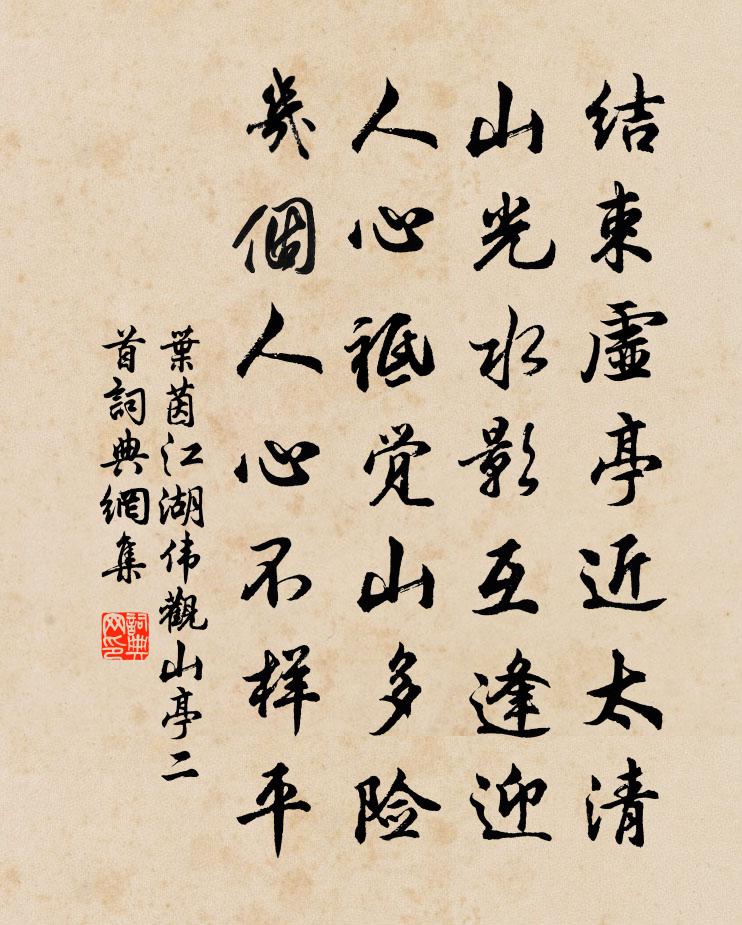 结束虚亭近太清
山光水影互逢迎
人心祗觉山多险
几個人心不样平
葉茵江湖伟觀山亭二
首詞典網集
詞典网印